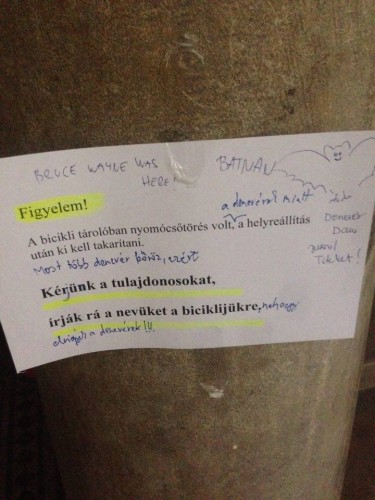 BRUCE WAYNE WAS HERE!
BATMAN
Figyelem!
a denevérek miatt
A bicikli tárolóban nyomócsőtörés volt, a helyreállítás
után ki kell takaritani.
Most több denevér, ezért
Kérjünk a tulajdonosokat,
írják rá a nevüket a biciklijükre, nehogy
a denevérek!!!
Denevér
Titeket!